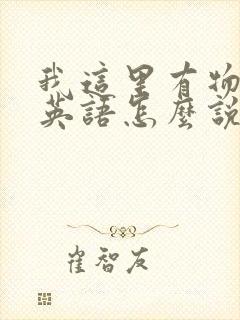 我這里有物
英語怎麼說
崔智友